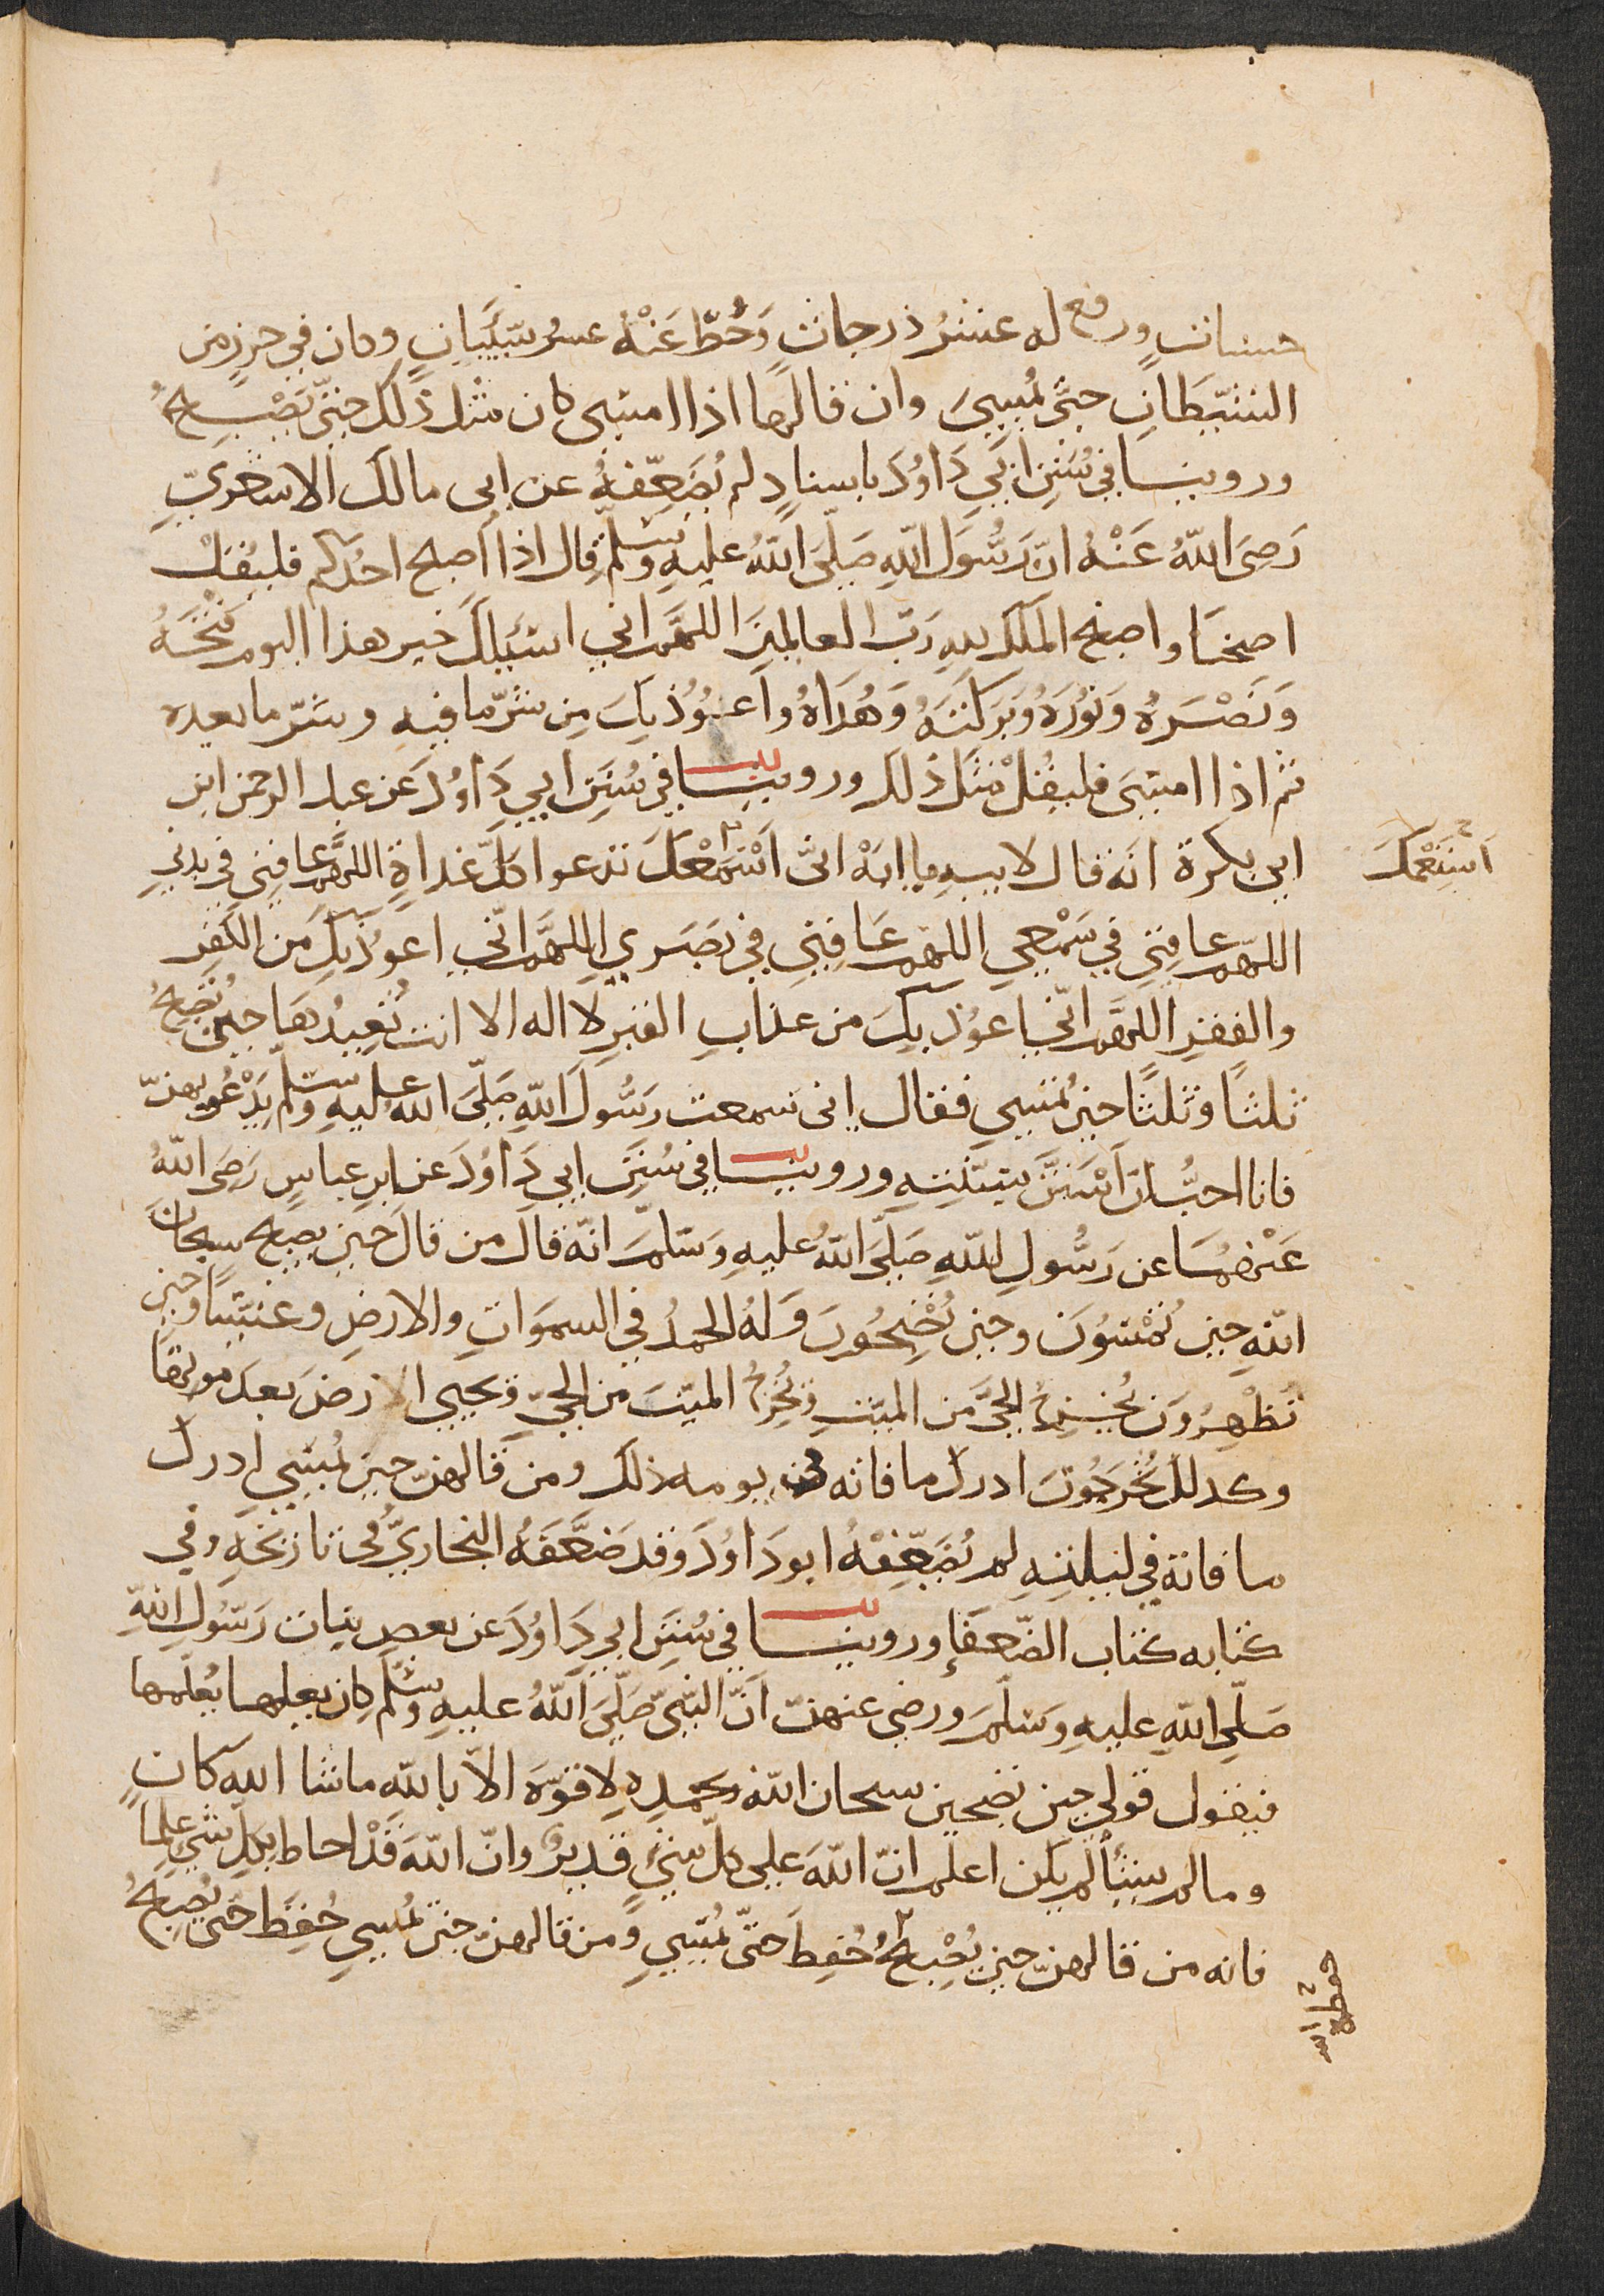 حسنات ورفع له عشرُ درجاتٍ وَحُطَّ عَنْهُ عشرُ سَيِّئَاتٍ وكان في حرز من
الشَّيْطَانِ حتَّى يُمْسِيَ وان قالها اذا امسَى كان مثل ذلك حتّى يُصْبِحُ
وروينا في سُنَنِ ابي دَاوُدَ باسنادٍ لم يُضَعِّفْهُ عن ابى مالك الاشعريّ
رَضِىَ اللّهُ عَنْهُ انّ رَسُولَ اللّهِ صَلَّى اللّهُ عليهِ وسَلّم قال اذا اصبح احدكم فليَقُلْ
اصبحنَا واصبح الملك للهِ رَبِّ العالمينَ اللّهَم اني اسئلك خير هذا اليوم فَتْحَهُ
وَنَصْرَهُ وَنُورَهُ وَبَرَكَتَهُ وَهُدَاهُ واَعوُذ بِكَ مِن شرّ ما فيهِ وشرّ ما بعده
ثم اذا امسَى فليقُلْ مثل ذلك وروينا في سُنَنِ ابي دَاوُدَ عن عبد الرحمن ابن
ابى بكرة انه قال لابيهِ يا ابَهْ انّى اَسْمَعُكَ تدعوا كلَّ غداةٍ اللهَّم عافِنِي في بدني
اَسْتَمِعُكَ
اللهّم عافِنِي في سَمْعِي اللهّم عَافِنِي في بَصَرِي اللهَّم انّي اعوذ بِكَ من الكفر
والفقرِ اللهَّم انّي اعوُذ بِكَ من عذابِ القبرِ لا اله الا انت تُعِيدُها حين تُصْبِحُ
ثلثًا وثلثًا حين تُمْسِي فقال انى سمعت رَسُولَ اللّهِ صَلَّى اللّهُ عليهِ وسَلّم يَدْعُو بهنّ
فانا احبُّ ان اَسْتَنَّ بسنّتِهِ وروينا في سُنَنِ ابي دَاوُدَ عن ابن عباسٍ رَضِىَ اللّهُ
عَنْهُمَا عن رَسُولِ اللّهِ صَلَّى اللّهُ عليهِ وَسَلَّمَ انّه قال من قالَ حين يصبح سبحانَ
اللّهِ حين تُمْسُونَ وحين تُصْبِحُونَ وَلهُ الحمدُ في السموَاتِ والارضِ وعشيًّا وحين
تُظْهِرُونَ يُخْرِجُ الحيَّ من الميّتِ وَيُخْرِجُ الميّتَ من الحيّ ويحيي الارضَ بعدَ موتها
وكذلك تُخْرَجُونَ ادرك ما فاته في يومه ذلك ومن قالهنّ حين يُمْسِي ادرك
ما فاته في ليلتهِ لم يُضَعِّفْهُ ابو دَاوُدَ وقد ضَعَّفَهُ البخاريُّ في تاريخهِ وفي
كتابه كتاب الضّعفاءِ وروينا في سُنَنِ ابي دَاوُدَ عن بعض بنات رَسُولِ اللّهِ
صَلّى اللّهِ عليهِ وَسَلّمَ ورضى عنهنّ اَنّ النّبيّ صَلّىَ اللّهُ عليهِ وسَلّم كان يعلمها يُعلّمها
فيقول قولي حين تصبحين سبحان اللّه وبحمدِهِ لا قوّةَ الاّ باللّه ما شا اللّه كان
وما لم يشأ لم يكن اعلم انّ اللّهَ على كلّ شئٍ قديرٌ وانّ اللّهَ قَدْ احاط بكلّ شيءٍ علما
فانه من قالهنّ حين يُصْبِحُ حُفِظَ حتّى يُمْسِي ومن قالهنّ حين يُمْسِي حُفِظَ حتى يُصْبِحُ